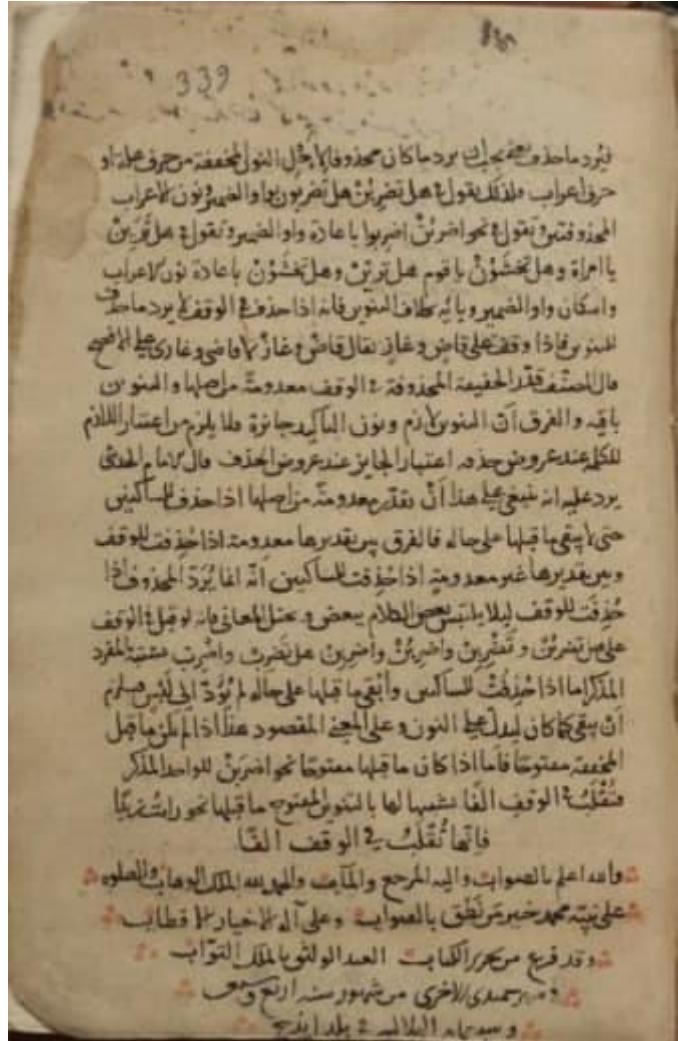 339
فيرد ما حذف يعني يجب ان يرد ما كان محذوفا لاجل النون المخففة من حرف علة او
حرف اعراب ولذلك يقول في هل تضربُنْ هل تضربون بواو الضمير ونون الاعراب
المحذوفتين وتقول في نحو اضربُنْ اضربوا باعادة واو الضمير وتقول في هل تَرَيِنْ
يا امراة وهل تخشَوُنْ يا قوم هل ترين وهل تخشَوْنْ باعادة نون الاعراب
واسكان واو الضمير ويائه بخلاف التنوين فانه اذا حذف في الوقف لا يرد ما حذف
للتنوين فاذا وقف على قاضٍ وغازٍ يقال قاضْ وغازْ لا قاضي وغازي على الافصح
قال المصنف قدّر الخفيفة المحذوفة في الوقف معدومة من اصلها والتنوين
باقية والفرق أن التنوين لازم ونون التاكيد جائزة ولا يلزم من اعتبار اللازم
للكلمة عند عروض حذفه اعتبار الجايز عند عروض الحذف قال الامام الحديثي
يرد عليه انه ينبغي على هذا أنْ تقدّر معدومة من اصلها اذا حذف للساكنين
حتى لا يبقى ما قبلها على حاله فالفرق بين تقديرها معدومة اذا حُذِفت للوقف
وبين تقديرها غير معدومة اذا حُذِفت للساكنين انّه انما يُرَدّ المحذوف اذا
حُذِفَت للوقف ليلا يلتبس بعض الكلام ببعض ويختل المعاني فانه لو قيل في الوقف
على هل تضربُنْ و تَضْرِبِنْ واضربُنْ واضربِنْ هل تَضرب واضْرِب مشبه المفرد
المذكر اما اذا حُذِفَتْ للساكنين وأبقى ما قبلها على حاله لم يُؤدّ الى لَبْس فيلزم
أنْ يبقى كما كان ليدلّ على النون وعلى المعنى المقصود هذا اذا لم يكن ما قبل
المخففة مفتوحًا فأما اذا كان ما قبلها مفتوحًا نحو اضربَنْ للواحد المذكر
فتُقْلَبُ في الوقف الفًا تشبيها لها بالتنوين المفتوح ما قبلها نحو رايتُ زيدًا
فانّها تُقْلَبُ في الوقف الفًا
والله اعلم بالصواب واليه المرجع والمآب والحمد لله الملك الوهاب والصلوة
على نبيّه محمد خير مَن نطق بالصواب وعلى آله الاخيار الاقطاب
وقد فرغ من تحرير الكتاب العبد الواثق بالملك التوّاب
جمدى الاخرى من شهور سنه اربع
في بلد